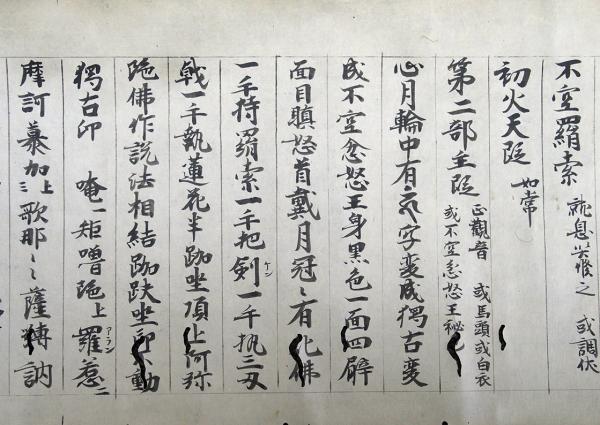 不空羂索 就息災修之 或調伏
初火天段 如常
第二部主段 正觀音 或馬頭或白衣 或不空忿怒王秘
心月輪中有字變成獨古變
成不空忿怒王身黑色一面四臂
面目瞋怒首戴月冠〻有化佛
一手持羂索一手把剣ケン一手執三叉
戟一手執蓮花半跏坐頂上阿弥
陁佛作說法相結跏趺坐印不動
獨古印 唵一矩嚕陁上羅アラン惹二
摩訶慕加上ミ歌那〻薩轉訥